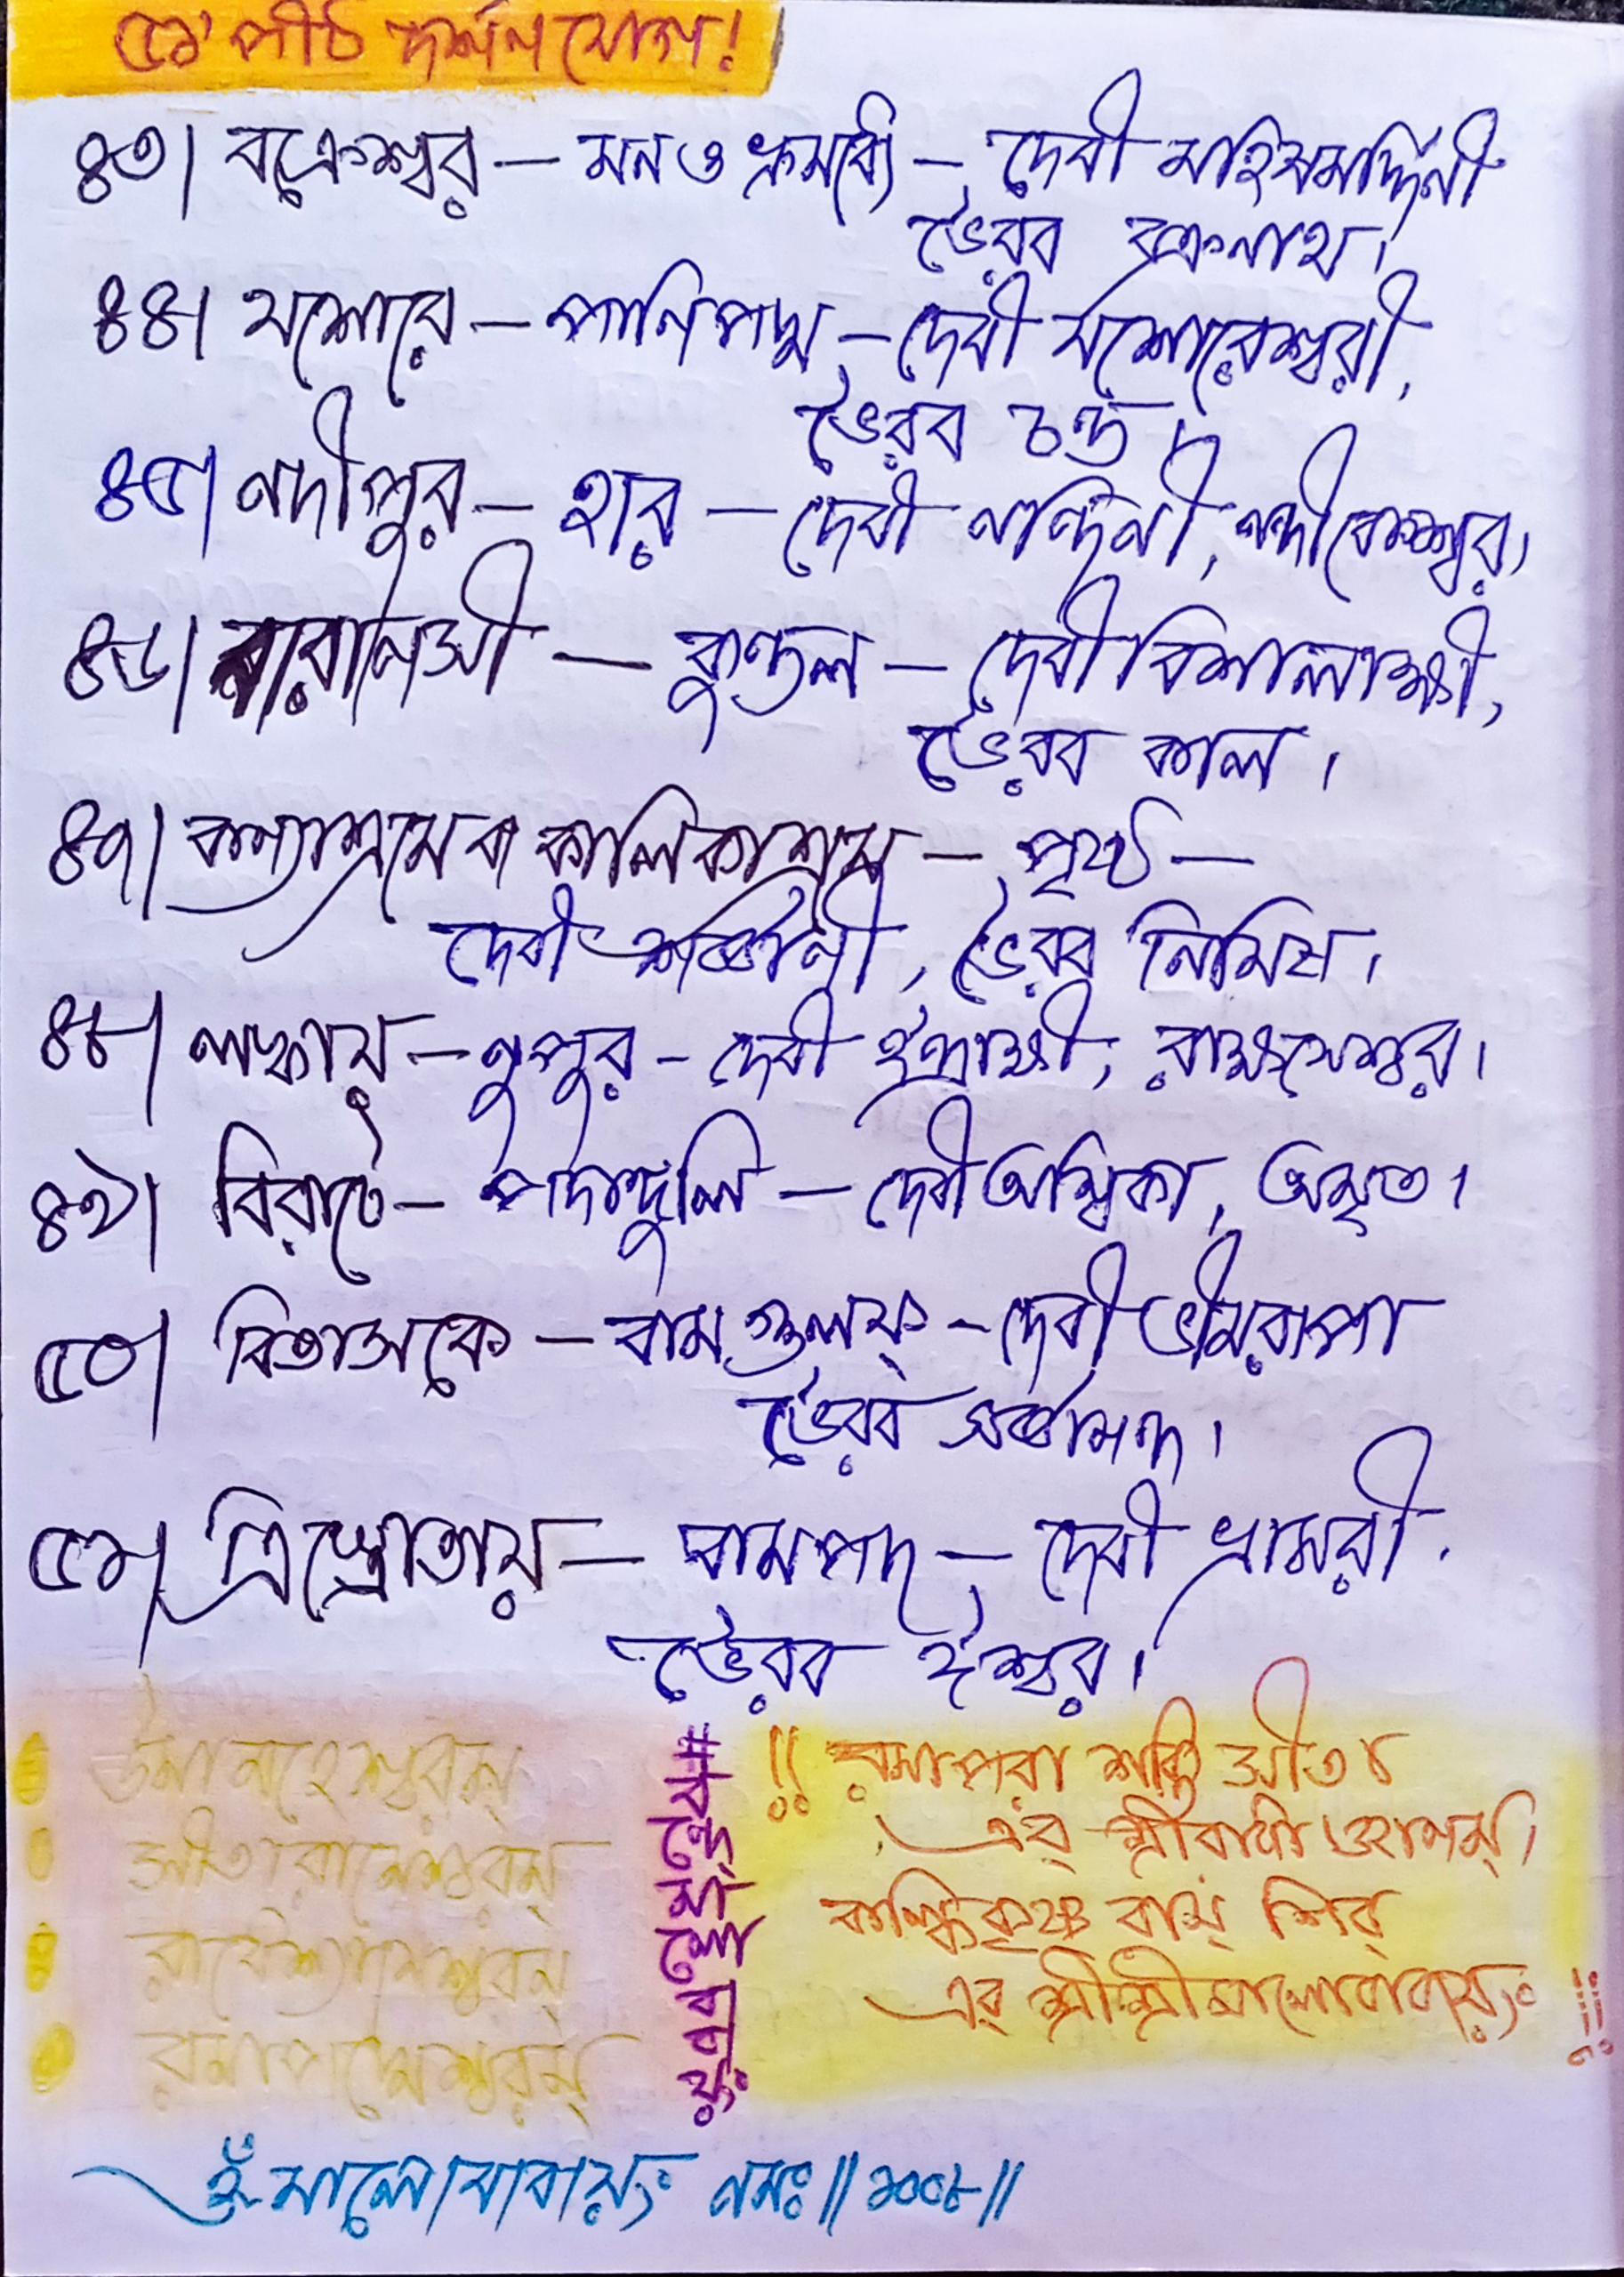 ৫১' পীঠ দর্শন যোগ!
৪৩। বক্রেশ্বর – মন ও ভ্রুমধ্যে – দেবী মহিষমর্দ্দিনী
ভৈরব বক্রনাথ।
৪৪। যশোরে – পানিপদ্ম – দেবী যশোরেশ্বরী,
ভৈরব চণ্ড।
৪৫। নন্দীপুর – হার – দেবী নন্দিনী, নন্দীকেশ্বর।
৪৬। বারাণসী – কুণ্ডল – দেবী বিশালাক্ষী,
ভৈরব কাল।
৪৭। কন্যাশ্রমে বা কালিকাশ্রম – পৃষ্ঠ –
দেবী শর্ব্বাণী, ভৈরব নিমিষ।
৪৮। লঙ্কায় – নুপুর – দেবী ইন্দ্রাক্ষী, রাক্ষসেশ্বর।
৪৯। বিরাটে – পদাঙ্গুলি – দেবী অম্বিকা, অমৃত।
৫০। বিভাসকে – বাম গুলফ্ – দেবী ভীমরূপা
ভৈরব সর্ব্বানন্দ।
৫১। ত্রিস্রোতায় – বামপদ – দেবী ভ্রামরী.
ভৈরব ঈশ্বর।
উমামহেশ্বরম্
সীতারামেশ্বরম্
রাধেশ্যামেশ্বরম্
রমাপদ্মেশ্বরম্
!! রমাপরা শক্তি সীতা
এব্ শ্রীরাধা
কল্কিকৃষ্ণ রাম্ শিব্
এব্ শ্রীশ্রীমালোবাবায়ং !!!
ওঁ মালোবাবায়ং নমঃ॥১০০৮॥